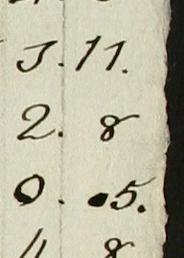 3.11.
2. 8
0. .5.
4 8